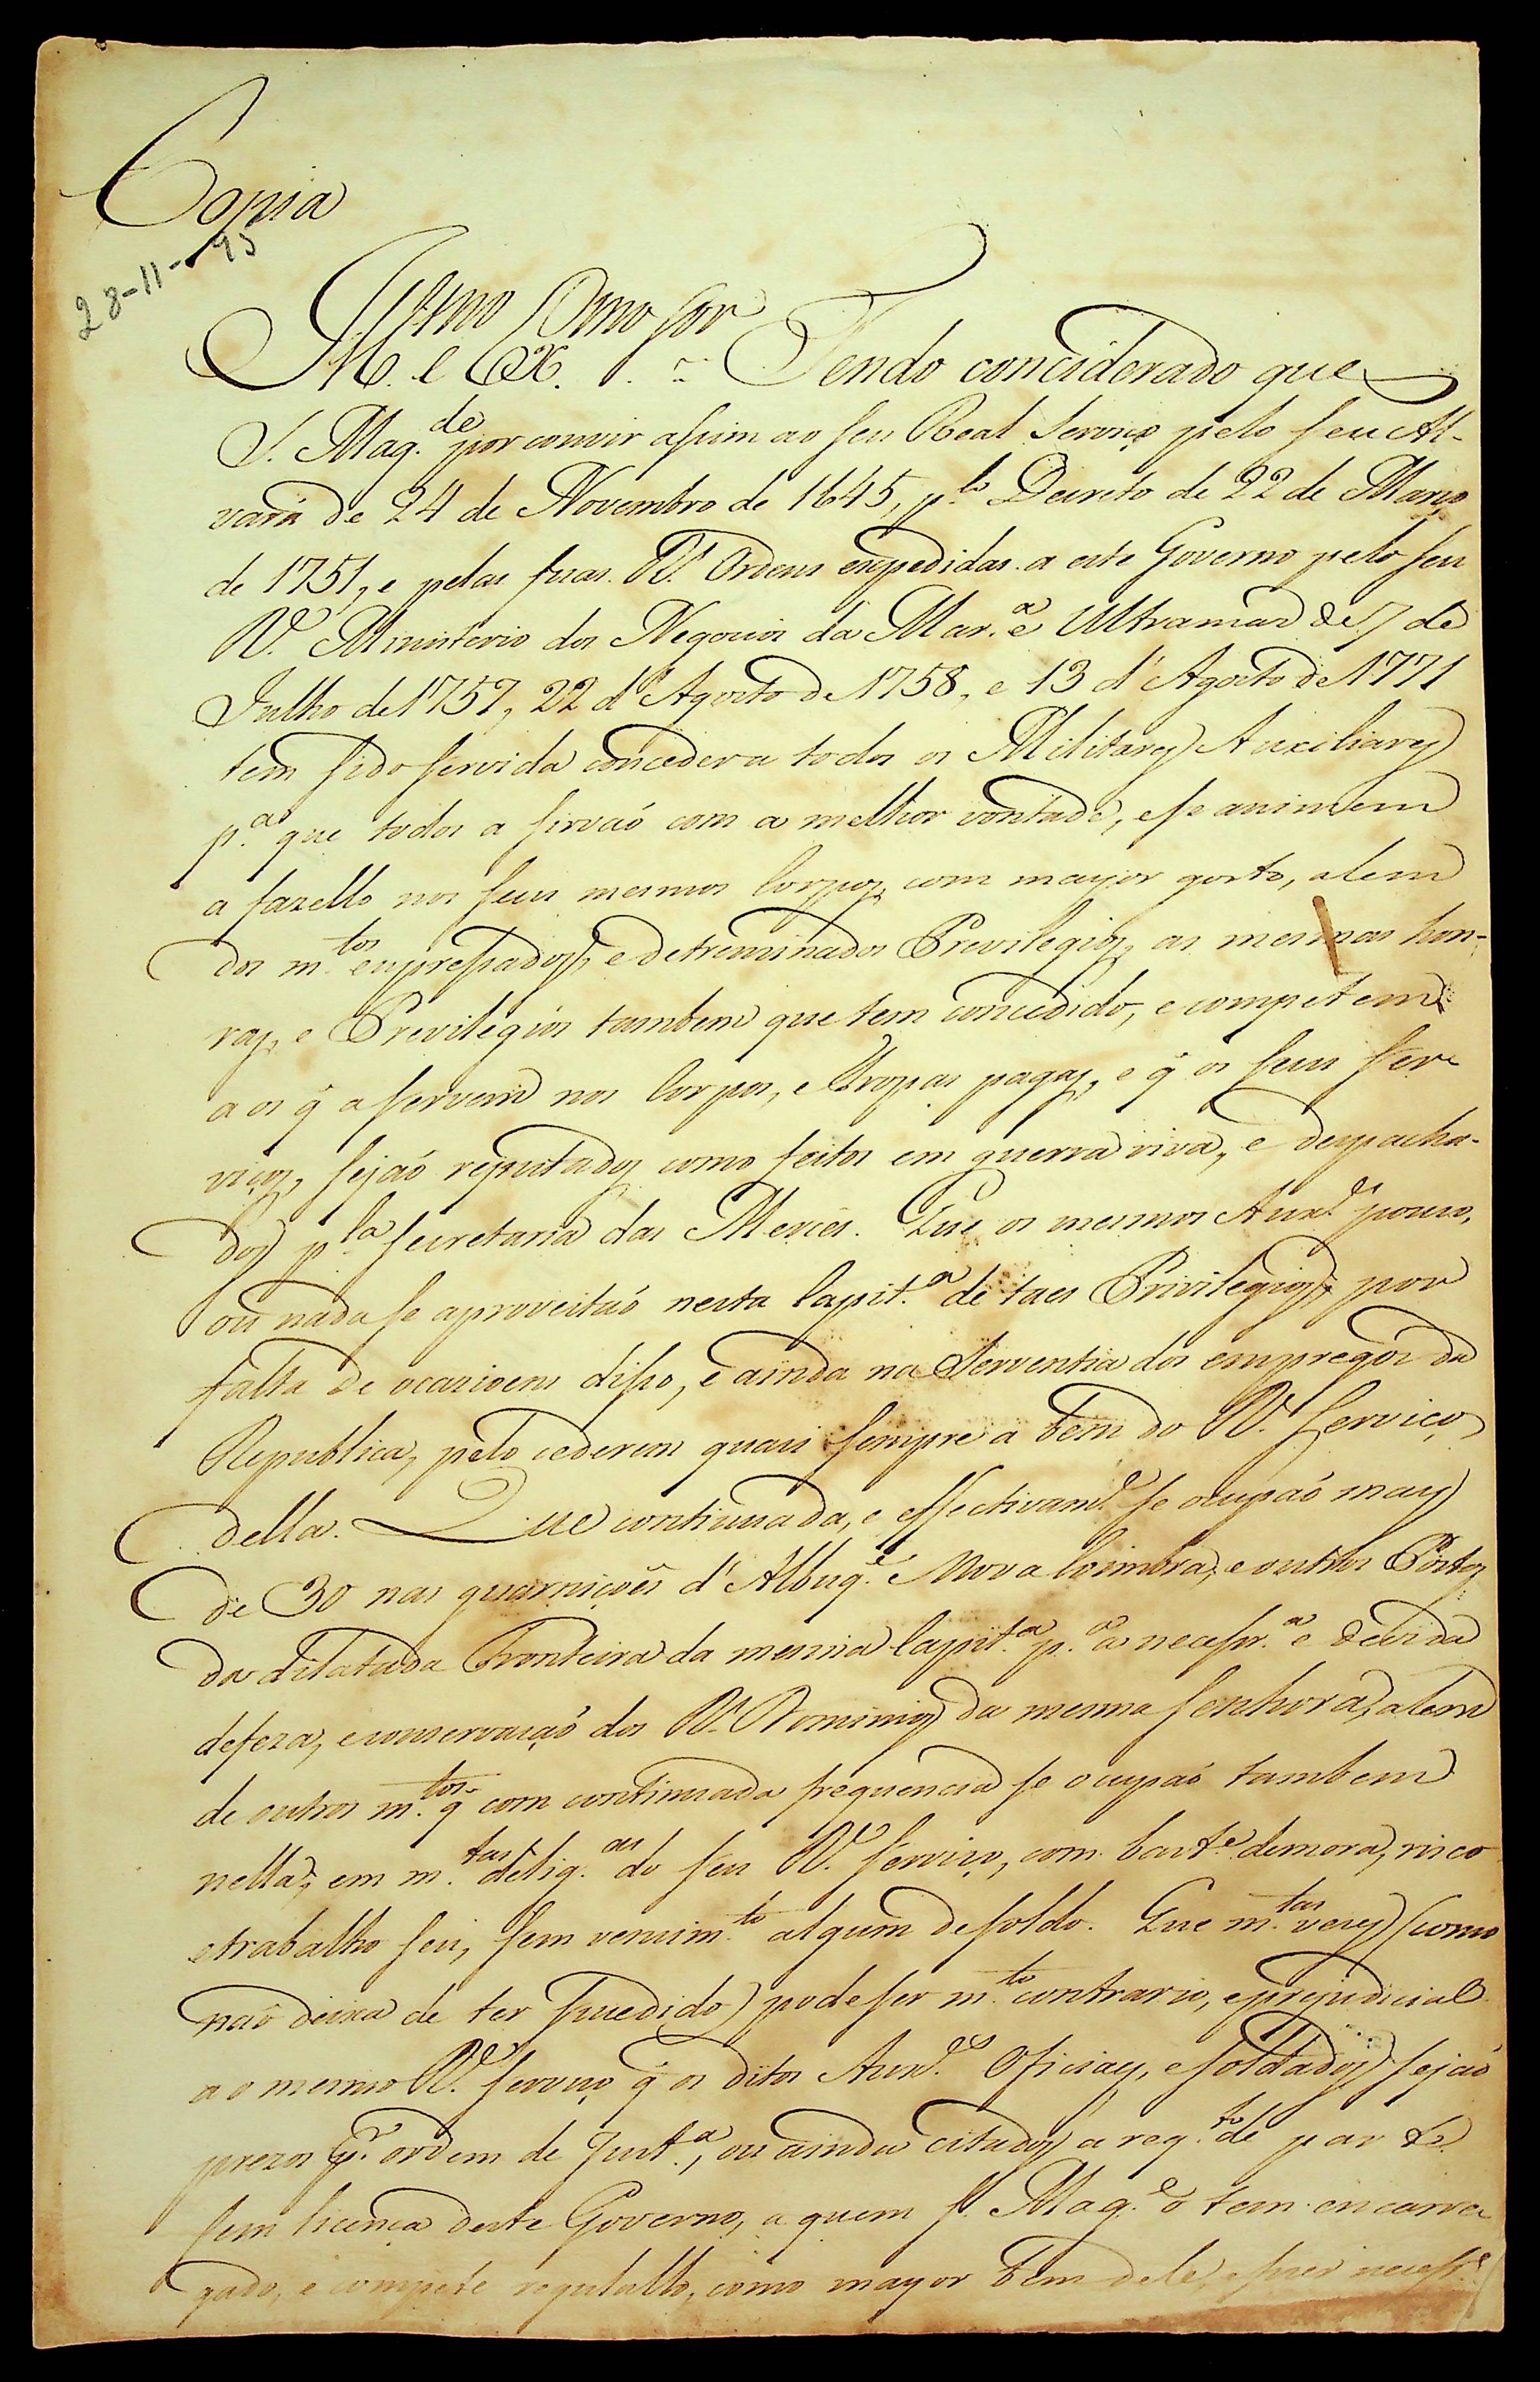 Copia
28-11-95
Illmo e Exmo Sor = Tendo conciderado que
S. Mag.de por convir assim ao seu Real Serviço pelo seu Al-
vará de 24 de Novembro de 1645, p.lo Decreto de 22 de Março
de 1751, e pelas suas R.s Ordens expedidas a este Governo pelo seu
R.l Ministerio dos Negocios da Mar.a e Ultramar de 7 de
Julho de 1757, 22 d'Agosto de 1758, e 13 d'Agosto de 1771
tem sido servida conceder a todos os Militares Auxiliares
p.a que todos a sirvaõ com a melhor vontade, e se animem
a fazello nos seus mesmos Corpos com mayor gosto, alem
dos m.tos expressados, e detreminados Previlegios, as mesmas hon-
ras, e Previlegios tambem que tem concedido, e competem
aos q̃ a servem nos Corpos, e Tropas pagas, e q̃ os seus ser-
viços, sejaõ reputados como feitos em guerra viva, e despacha-
dos p.la Secretaria das Mercês. Que os mesmos Aux.es pouco,
ou nada se aproveitaõ nesta Capit.a de taes Privilegios, por
falta de ocazioens disso, e ainda na Serventia dos empregos da
Republica, pelo cederem quasi sempre a bem do R.l Serviço
della. Que continuada, e effectivam.e se ocupaõ mays
de 30 nas guarniçoês d'Albuq.e Nova Coimbra, e outros Postos
da dilatada Fronteira da mesma Capit.a p.a a necessr.a e devida
defeza, e conservaçaõ dos R.s Dominios da mesma Senhora, alem
de outros m.tos q̃ com continuada frequencia se ocupaõ tambem
nella, em m.tas delig.as do seu R.l serviço, com bast.e demora, risco
e trabalho seu, sem vencim.to algum de soldo. Que m.tas vezes (como
naõ deixa de ter sucedido) pode ser m.to contrario, e prejudicial
ao mesmo R.l serviço q̃ os ditos Aux.es Oficiaes, e soldados sejaõ
prezos p.r ordem de Just.a, ou ainda citados a req.to de par.te
sem licença deste Governo, a quem S. Mag.e o tem encarre-
gado, e compete regulallo, como mayor bem dele, e suas necess.es